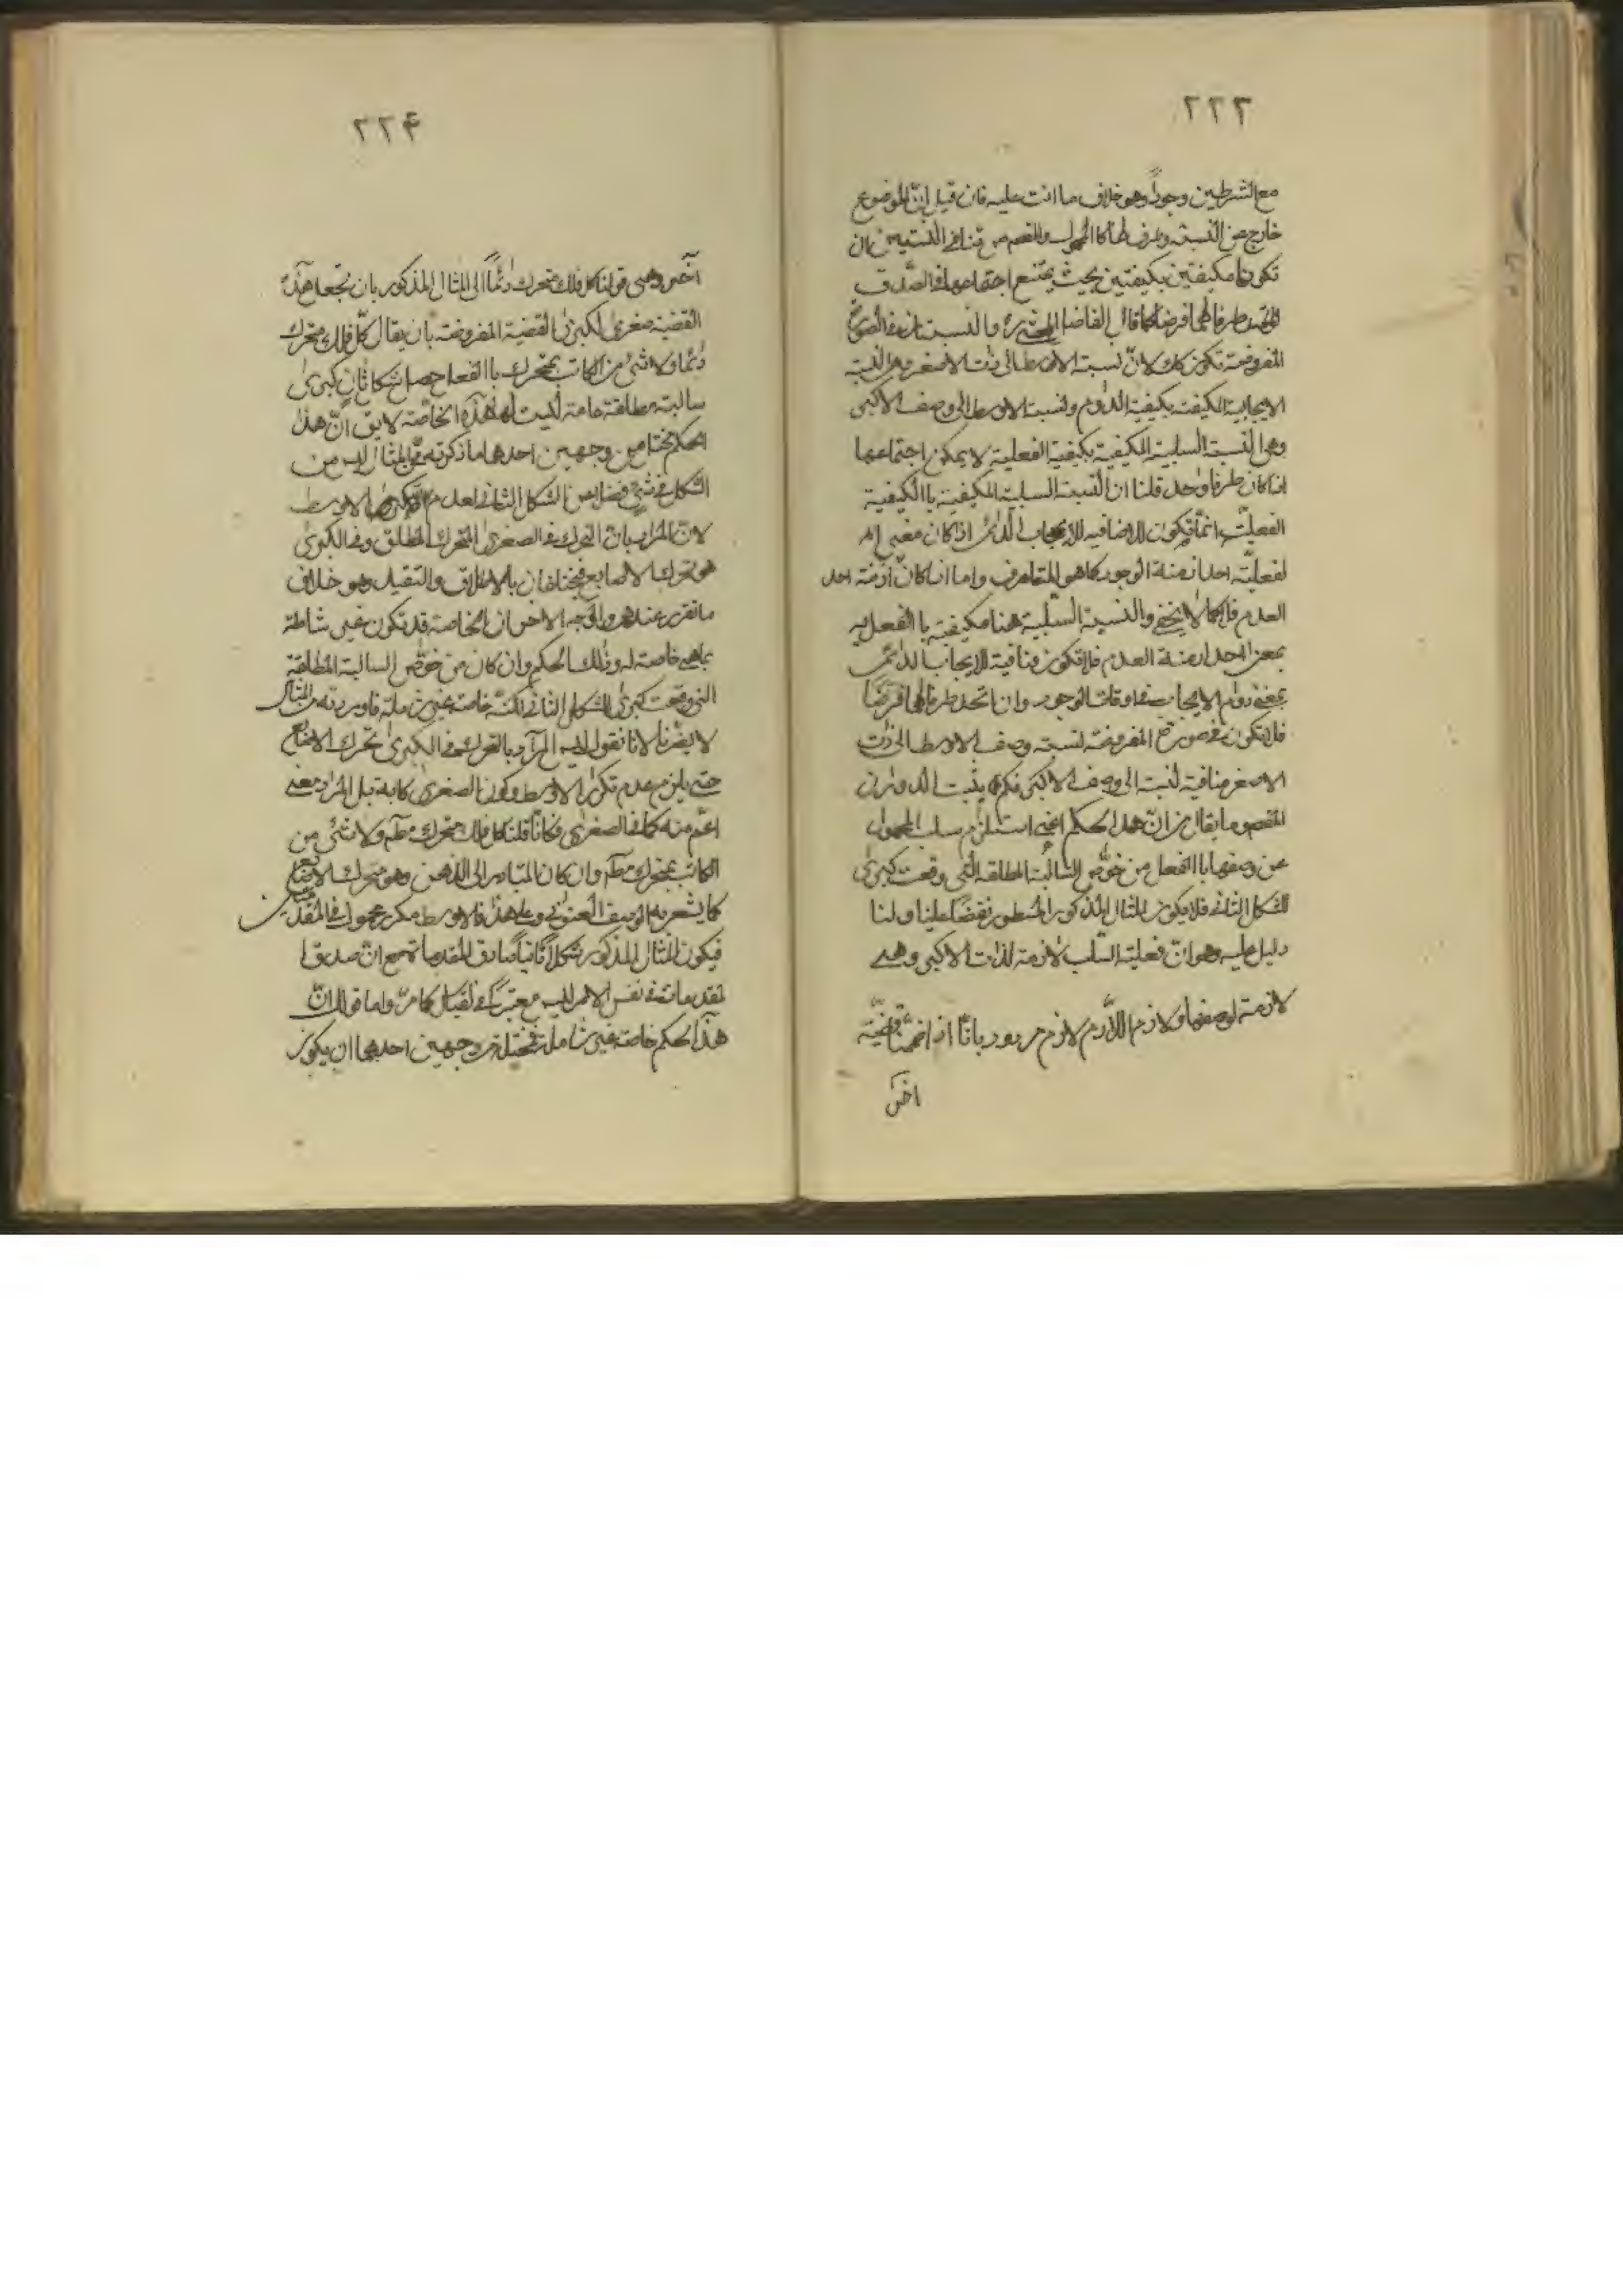 ٢٢٣
مع الشرطين وجوداً وهو خلاف ما انت عليه فان قيل انّ الموضوع
خارج عن النسبة وطرف لها كالمحمول والمقصود من تنافي النسبتين ان
تكونا مكيفتين بكيفيتين بحيث يمتنع اجتماعهما في الصّدق
طرفاهما فرضا كما قال الفاضل المحشي ره والنسبتان في الصورة
المفروضة تكون كك لانّ نسبة الاوسط الى ذات الاصغر وهي النسبة
الايجابية المكيفة بكيفية الدوام ونسبة الاوسط الى وصف الاكبر
وهي النسبة السلبية المكيفية بكيفية الفعلية لا يمكن اجتماعهما
اذا كان طرفا واحد قلنا ان النسبة السلبية المكيفية باالكيفية
الفعليّة انمّا تكون للاضافيه للايجاب الدائم اذا كان معنى اه
لفعليّة احد ازمنة الوجود كما هو المتعارف واما اذا كان ازمنة احد
العدم فلا كما لا يخفى والنسبة السّلبية هنا مكيفية باالفعليه
بمعنى احد ازمنة العدم فلا تكون منافية للايجاب الدائم
بمعنى دوام الايجاب في اوقات الوجود وان اتحد طرفاهما فرضا
فلا تكون في صورة المفروضة نسبة وصف الاوسط الى ذات
الاصغر منافية لنسبة الى وصف الاكبر فكم يثبت الدوران
المقصود ما يقال من انّ هذا الحكم اعني استلزام سلب المحمول
عن وصفها باالفعل من خوّص السّالبة المطلقه الّتي وقعت كبرى
للشكل الثاني فلا يكون المثال المذكور المسطور نقضا علينا ولنا
دليل عليه وهو انّ فعلية السّلب لازمة لذات الاكبر وهي
لازمة لوصفها ولازم اللّازم لازم مردود بانّا اذا ضممنا قضيّة
اخرى
٢٢۴
آخرى وهي قولنا كل فلك متحرك دائماً الى المثال المذكور بان نجعل هذه
القضية صغرى لكبرى القضية المفروضة بان يقال كلّ فلك متحرك
دائما ولا شئ من الكاتب بمتحرك باالفعل حصل شكل ثان كبرى
سالبة مطلقة عامة ليست لها هذه الخاصّة لا يق انّ هذا
الحكم مختل من وجهين احدهما ما ذكرته من المثال ليس من
الشكل في شئ فضلا من الشكل الثاني لعدم تكرر الاوسط
لانّ المراد بانّ التحرك في الصغرى التحرك المطلق وفي الكبرى
هو تحرك الاصابع فيختلفان بالاطلاق والتقييد وهو خلاف
ما تقرر عندهم والوجه الاخر ان الخاصة قد تكون غير شاملة
بما هي خاصة له وذلك الحكم وان كان من خوّص السالبة المطلقة
التي وقعت كبرى للشكل الثاني لكنّه خاصة غير شاملة فاوردته من المثال
لا يضرنا لانا نقول ليس المرآد بالتحرك في الكبرى تحرك الاصابع
حتى يلزم عدم تكرر الاوسط وكون الصغرى كاذبة بل المراد معنى
اعّم منه كما في الصغرى فكانّا قلنا كل فلك متحرك مطم ولا شئ من
الكاتب بمتحرك مطم وان كان المتبادر الى الذهن وهو متحرك الاصابع
كما يشعر به الوصف العنواني وعلى هذا فالاوسط مكرر محمول في المقدمتين
فيكون المثال المذكور شكلاً ثانياً صادق المقدمات مع انّ صدق ا
لمقدمات في نفس الامر ليس معتبر في القياس كما مرّ واما قولك انّ
هذا الحكم خاصة غير شاملة فمختل من وجهين احدهما ان يكون